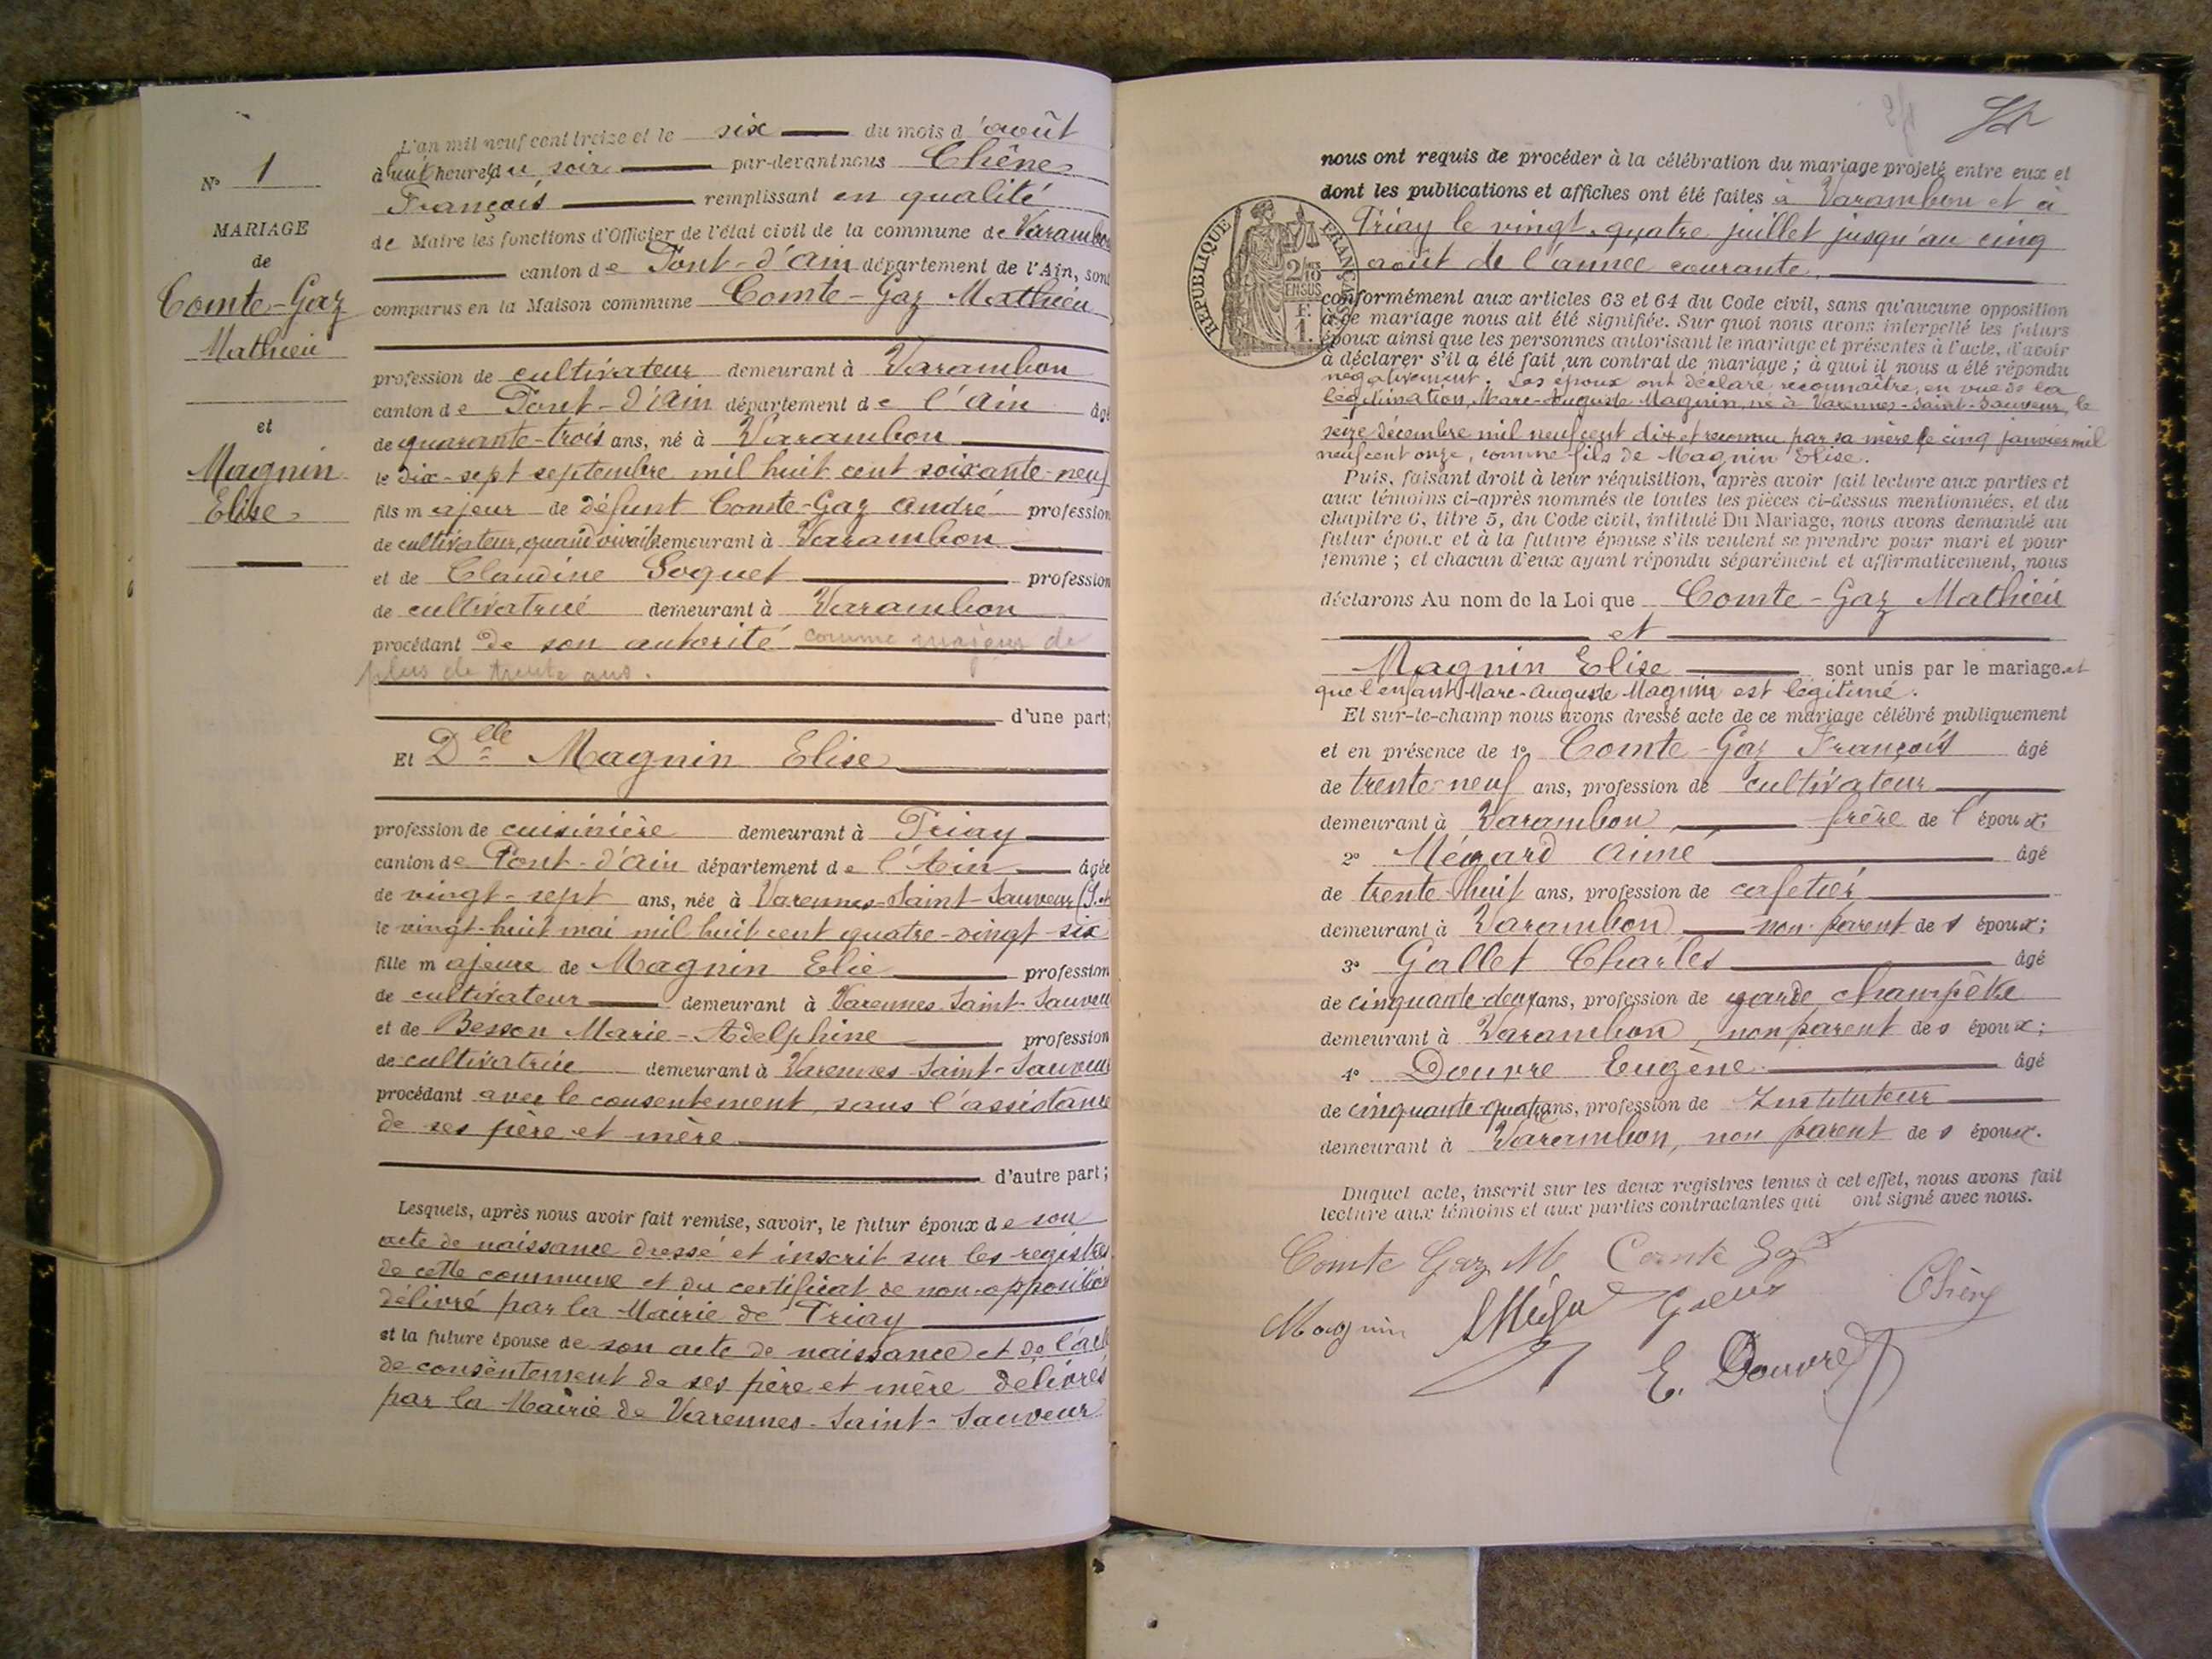 N° 1
MARIAGE
de
Comte-Gaz
Mathieu
et
Magnin
Elise
L'an mil neuf cent treize et le six du mois d'août
à huit heures du soir par-devant nous Chêne
François remplissant en qualité
de Maire les fonctions d'Officier de l'état civil de la commune de Varambon
canton de Pont-d'Ain département de l'Ain, sont
comparus en la Maison commune Comte-Gaz Mathieu
profession de cultivateur demeurant à Varambon
canton de Pont-d'Ain département de l'Ain âgé
de quarante-trois ans, né à Varambon
le dix-sept septembre mil huit cent soixante-neuf
fils majeur de défunt Comte-Gaz André profession
de cultivateur, quand vivait demeurant à Varambon
et de Claudine Soquet profession
de cultivatrice demeurant à Varambon
procédant de son autorité comme majeur de
plus de trente ans.
d'une part;
Et Delle Magnin Elise
profession de cuisinière demeurant à Priay
canton de Pont-d'Ain département de l'Ain âgée
de vingt-sept ans, née à Varennes-Saint-Sauveur (S. et
le vingt-huit mai mil huit cent quatre-vingt-six
fille majeure de Magnin Elie profession
de cultivateur demeurant à Varennes-Saint-Sauveu
et de Besson Marie-Adelphine profession
de cultivatrice demeurant à Varennes-Saint-Sauveur
procédant avec le consentement, sans l'assistance
de ses père et mère
d'autre part;
Lesquels, après nous avoir fait remise, savoir, le futur époux de son
acte de naissance dressé et inscrit sur les registres
de cette commune et du certificat de non-opposition
délivré par la Mairie de Priay
et la future épouse de son acte de naissance et de l'acte
de consentement de ses père et mère délivrés
par la Mairie de Varennes-Saint-Sauveur
nous ont requis de procéder à la célébration du mariage projeté entre eux et
dont les publications et affiches ont été faites à Varambon et à
Priay le vingt-quatre juillet jusqu'au cinq
août de l'année courante.
RÉPUBLIQUE FRANÇAISE
2/10 EN SUS
F.
1.
conformément aux articles 63 et 64 du Code civil, sans qu'aucune opposition
à ce mariage nous ait été signifiée. Sur quoi nous avons interpellé les futurs
époux ainsi que les personnes autorisant le mariage et présentes à l'acte, d'avoir
à déclarer s'il a été fait un contrat de mariage; à quoi il nous a été répondu
négativement. Les époux ont déclaré reconnaître, en vue de la
légitimation, Marc-Auguste Magnin, né à Varennes-Saint-Sauveur, le
seize décembre mil neuf cent dix et reconnu par sa mère le cinq janvier mil
neuf cent onze, comme fils de Magnin Elise.
Puis, faisant droit à leur réquisition, après avoir fait lecture aux parties et
aux témoins ci-après nommés de toutes les pièces ci-dessus mentionnées, et du
chapitre 6, titre 5, du Code civil, intitulé Du Mariage, nous avons demandé au
futur époux et à la future épouse s'ils veulent se prendre pour mari et pour
femme; et chacun d'eux ayant répondu séparément et affirmativement, nous
déclarons Au nom de la Loi que Comte-Gaz Mathieu
et
Magnin Elise sont unis par le mariage et
que l'enfant Marc-Auguste Magnin est légitimé.
Et sur-le-champ nous avons dressé acte de ce mariage célébré publiquement
et en présence de 1° Comte-Gaz François âgé
de trente-neuf ans, profession de cultivateur
demeurant à Varambon, frère de l'époux;
2° Mégard Aimé âgé
de trente-huit ans, profession de cafetier
demeurant à Varambon non parent des époux;
3° Gallet Charles âgé
de cinquante-deux ans, profession de garde champêtre
demeurant à Varambon, non parent des époux;
4° Douvre Eugène âgé
de cinquante-quatre ans, profession de Instituteur
demeurant à Varambon, non parent des époux.
Duquel acte, inscrit sur les deux registres tenus à cet effet, nous avons fait
lecture aux témoins et aux parties contractantes qui ont signé avec nous.
Comte Gaz M Comte Gaz
Magnin Chêne
E. Douvre